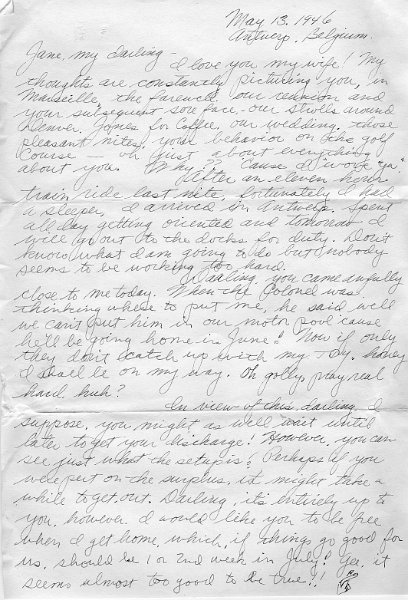 May 13, 1946
Antwerp, Belgium.
Jane, my darling —
I love you my wife! My
thoughts are constantly picturing you, in
Marseille, the farewell, our reunion and
your subsequent sore face - our strolls around
Denver, Jones for Coffee, our wedding, those
pleasant nites, your behavior on the golf
course — oh just about everything
about you. Why? 'Cause I love "ya"
After an eleven hour
train ride last nite, fortunately I had
a sleeper, I arrived in Antwerp. Spent
all day getting oriented and tomorrow I
will go out to the docks for duty. Don't
know what I am going to do but nobody
seems to be working too hard.
Darling, you came awfully
close to me today. When the Colonel was
thinking where to put me, he said well
we can't put him in our motor pool 'cause
he'll be going home in June! Now if only
they don't catch up with my T.D. honey
I shall be on my way. Oh golly, pray real
hard, huh?
In view of this, darling, I
suppose, you might as well wait until
later to get your discharge! However, you can
see just what the setup is. Perhaps if you
were put on the surplus, it might take a
while to get out. Darling, it's entirely up to
you, however I would like you to be free
when I get home, which, if things go good for
us, should be 1 or 2nd week in July! Yes, it
seems almost too good to be true!!